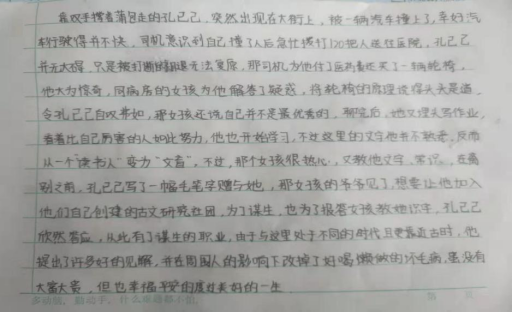 靠双手撑着蒲包走的孔乙己，突然出现在大街上，被一辆汽车撞上了，幸好汽
车行驶得并不快，司机意识到自己撞了人后急忙拨打120把人送往医院，孔乙己
并无大碍，只是被打断的腿无法复原，那司机为他付了医药费还买了一辆轮椅，
他大为惊奇，同病房的女孩为他解答了疑惑，将轮椅的原理说得头头是道，
令孔乙己自叹弗如，那女孩还说自己并不是最优秀的，聊完后，她又埋头写作业，
看着比自己厉害的人如此努力，他也开始学习，不过这里的文字他书不熟悉，反而
从一个"读书人"变为"文盲"，不过，那个女孩很热心，又教他文字，常识，在离
别之前，孔乙己写了一幅毛笔字赠与她，那女孩的爷爷见了，想要让他加入
他们自己创建的古文研究社团，为了谋生，也为了报答女孩教她识字，孔乙己
欣然答应，从此有了谋生的职业，由于与这里处于不同的时代且更靠近古时，他
提出了许多好的见解，并在周围人的影响下改掉了好喝懒做的坏毛病，虽没有
大富大贵，但也幸福平安的度过美好的一生